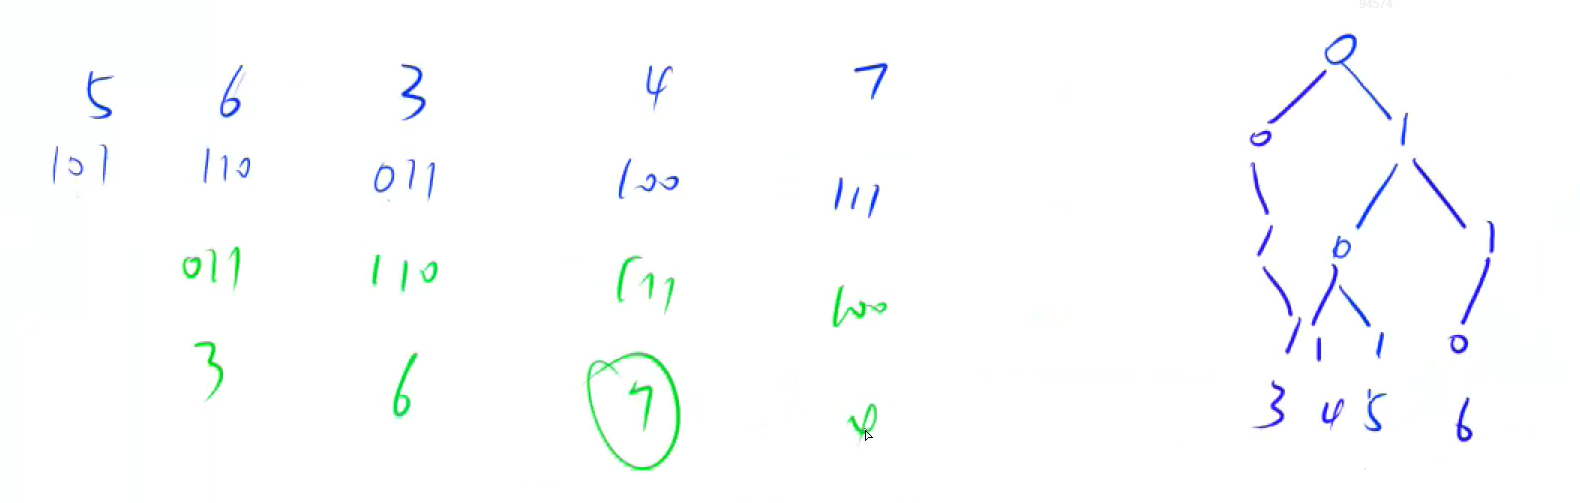 94574
5 6 3 4 7
101 110 011 100 111
011 110 111 100
3 6 7 4
0
0 1
1 0 1
1 1 1 0
3 4 5 6